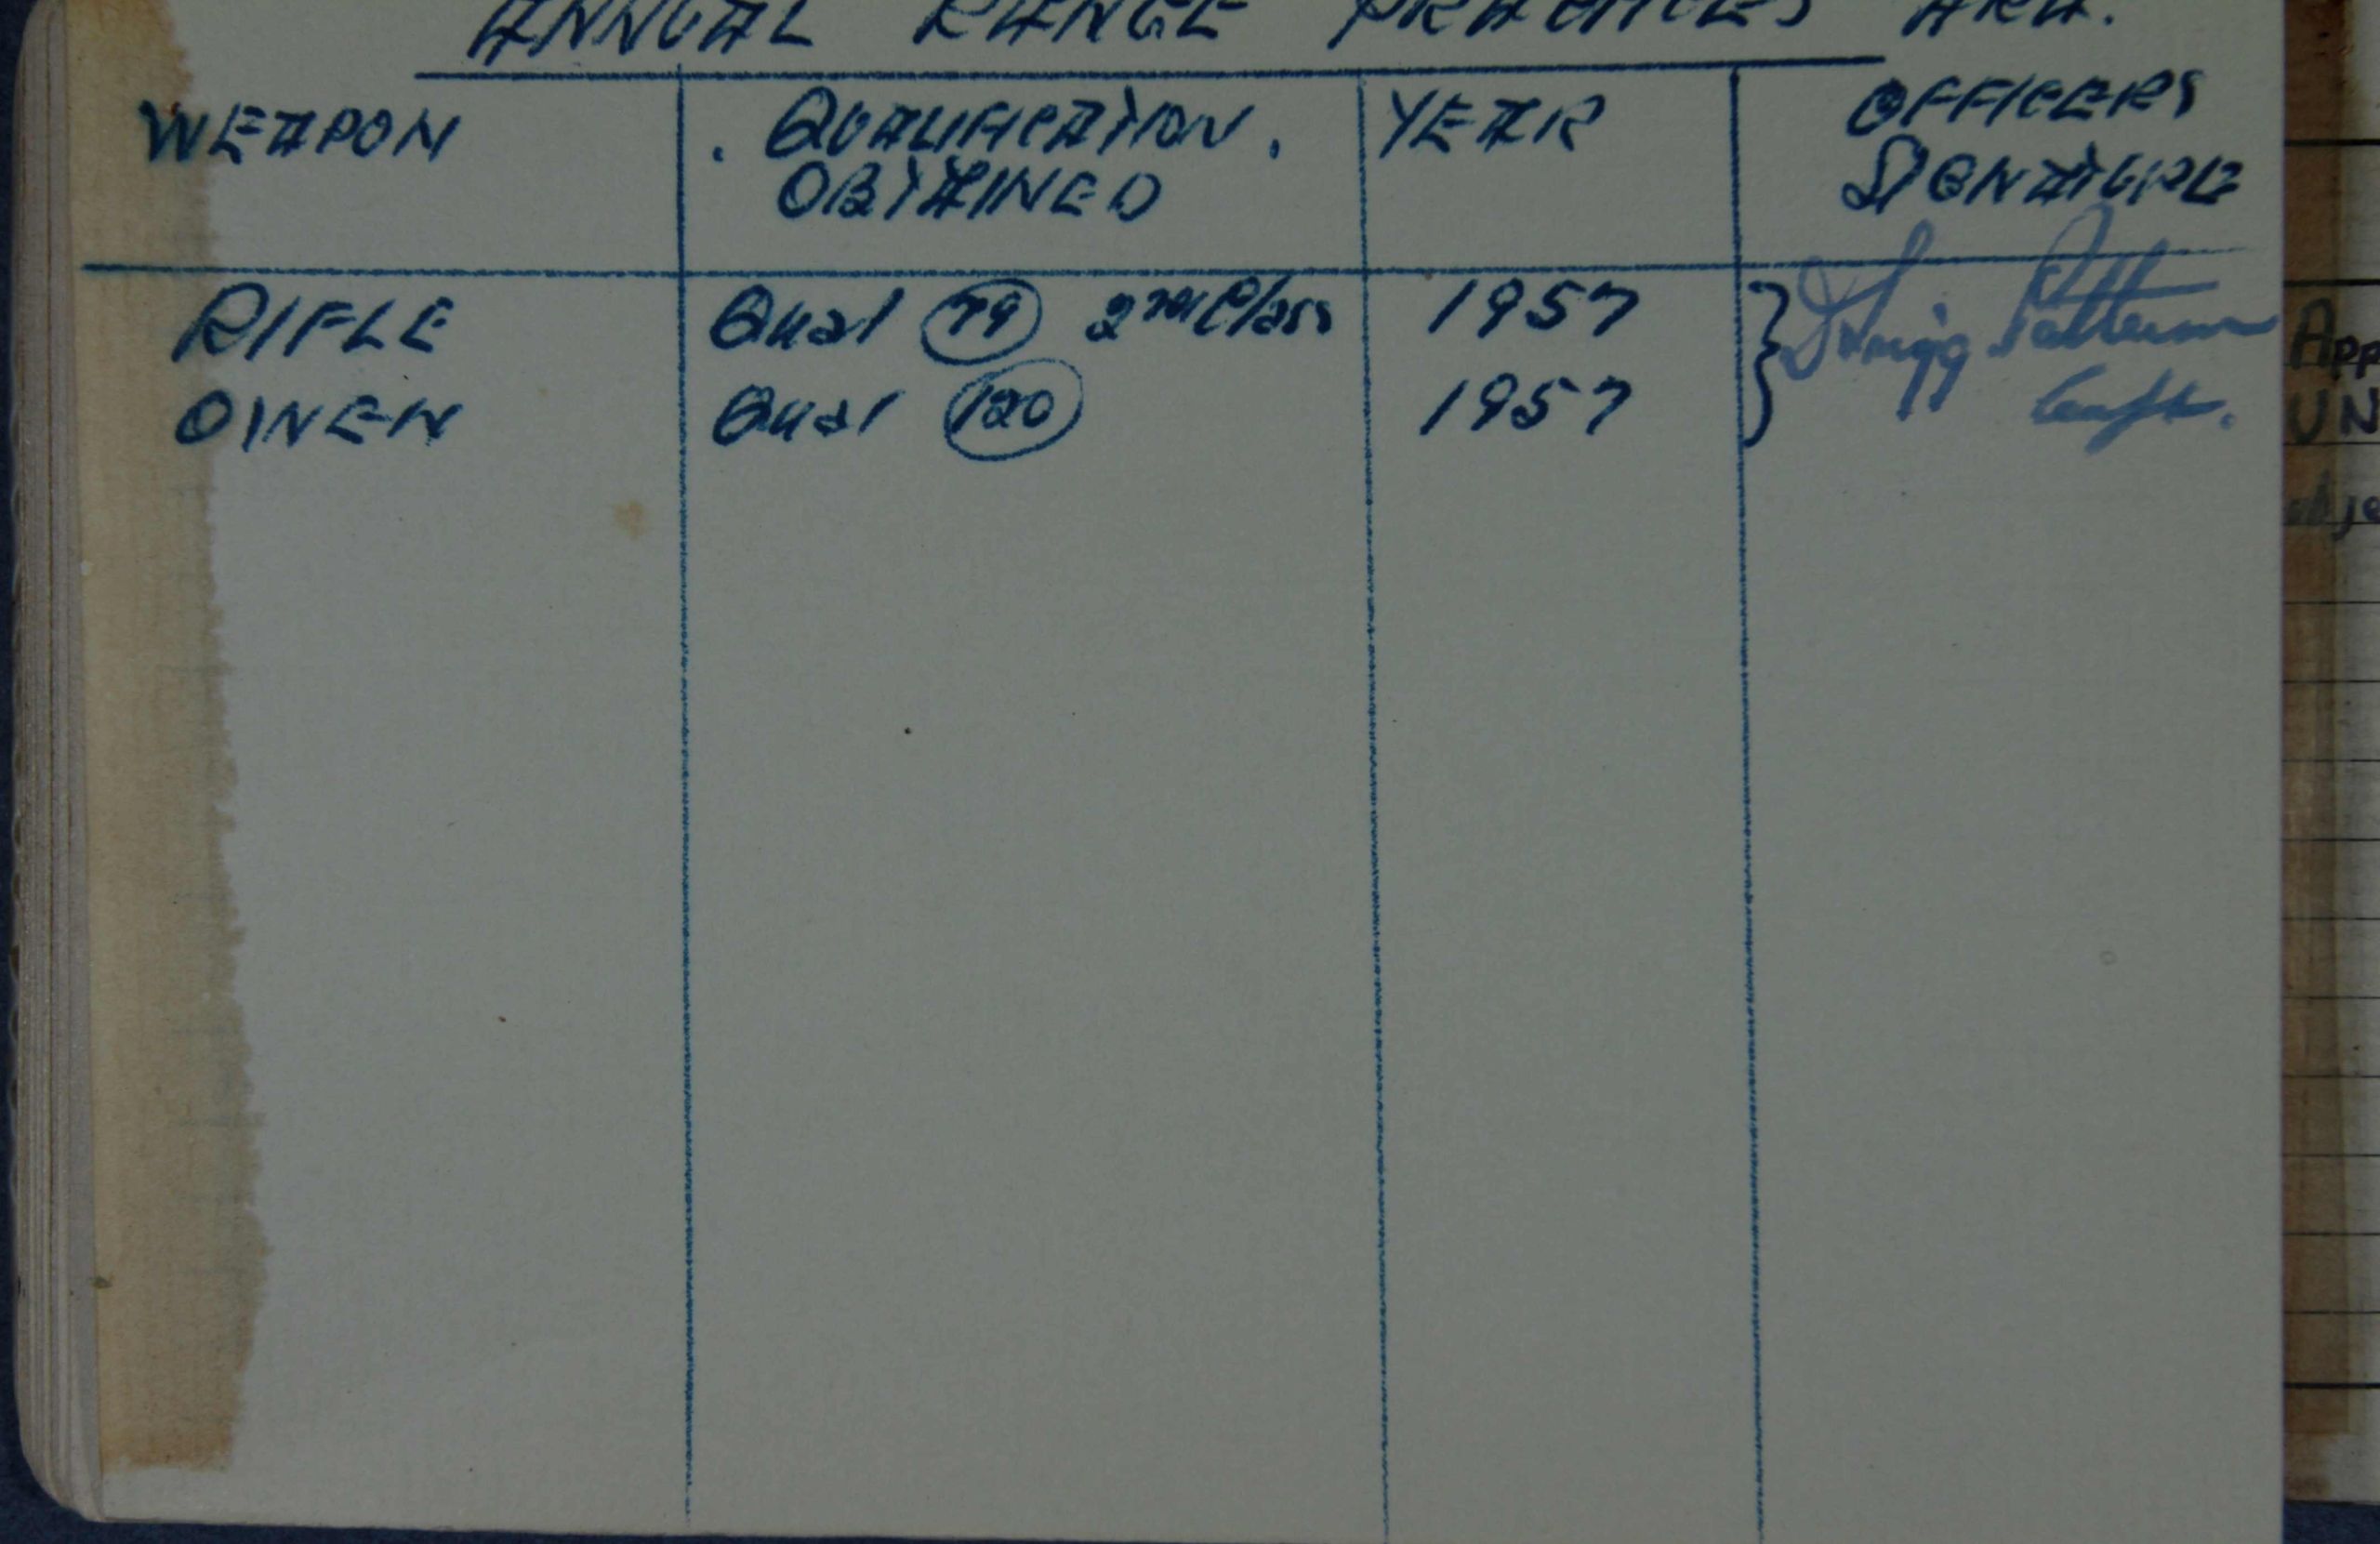 ANNUAL RANGE PRACTICES ARA.
WEAPON . QUALIFICATION . YEAR OFFICERS
OBTAINED SIGNATURE
RIFLE Qual 79 2nd Class 1957
OWEN Qual 120 1957 Capt.
App
UN